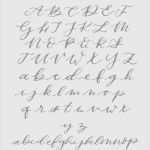 A B C D E F
G H I J K L M
N O P Q R S T
U V W X Y Z
a b c d e f g h
i j k l m n o p
q r s t u v w x
y z
a b c d e f g h i j k l m n o p